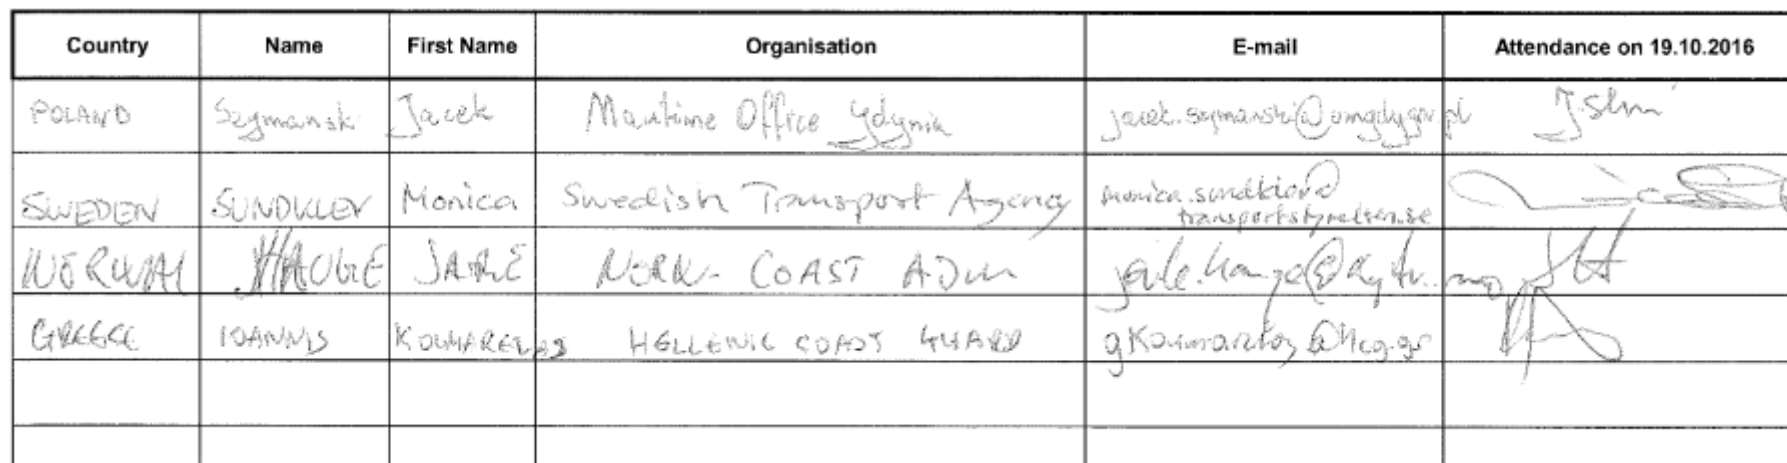 Country Name First Name Organisation E-mail Attendance on 19.10.2016
POLAND Szymanski Jacek Maritime Office Gdynia jacek.szymanski@umgdy.gov.pl
SWEDEN Monica Swedish Transport Agency monica.sundklev@
transportstyrelsen.se
HAUGE JARLE NORW. COAST ADM
GREECE IOANNIS HELLENIC COAST GUARD